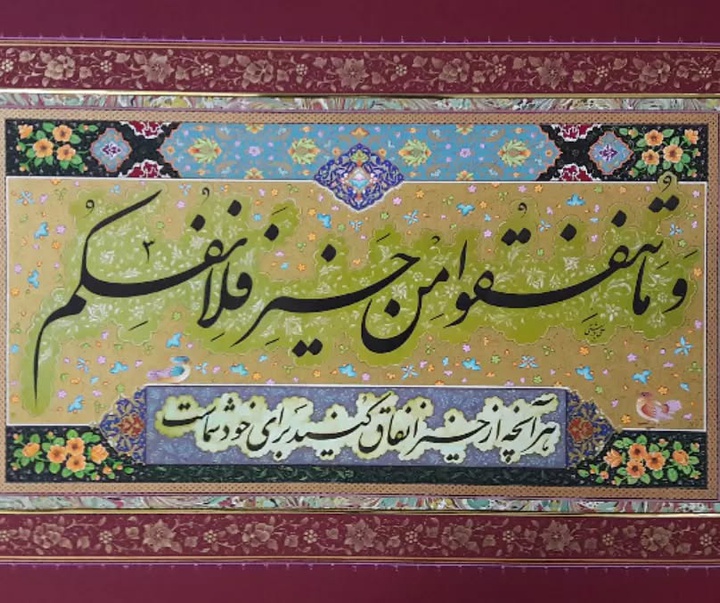 وَ ما تُنفِقُوا مِن خَیرٍ فَلِاَنفُسِکُم
هر آنچه از خیر انفاق کنید برای خود شماست